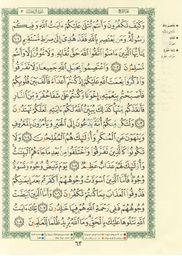 وَكَيْفَ تَكْفُرُونَ وَأَنتُمْ تُتْلَىٰ عَلَيْكُمْ ءَايَٰتُ ٱللَّهِ وَفِيكُمْ
رَسُولُهُۥ وَمَن يَعْتَصِم بِٱللَّهِ فَقَدْ هُدِىَ إِلَىٰ صِرَٰطٍ مُّسْتَقِيمٍ
يَٰٓأَيُّهَا ٱلَّذِينَ ءَامَنُوا۟ ٱتَّقُوا۟ ٱللَّهَ حَقَّ تُقَاتِهِۦ وَلَا تَمُوتُنَّ إِلَّا وَأَنتُم
مُّسْلِمُونَ وَٱعْتَصِمُوا۟ بِحَبْلِ ٱللَّهِ جَمِيعًا وَلَا تَفَرَّقُوا۟
وَٱذْكُرُوا۟ نِعْمَتَ ٱللَّهِ عَلَيْكُمْ إِذْ كُنتُمْ أَعْدَآءً فَأَلَّفَ بَيْنَ قُلُوبِكُمْ
فَأَصْبَحْتُم بِنِعْمَتِهِۦٓ إِخْوَٰنًا وَكُنتُمْ عَلَىٰ شَفَا حُفْرَةٍ مِّنَ ٱلنَّارِ
فَأَنقَذَكُم مِّنْهَا كَذَٰلِكَ يُبَيِّنُ ٱللَّهُ لَكُمْ ءَايَٰتِهِۦ لَعَلَّكُمْ تَهْتَدُونَ
وَلْتَكُن مِّنكُمْ أُمَّةٌ يَدْعُونَ إِلَى ٱلْخَيْرِ وَيَأْمُرُونَ بِٱلْمَعْرُوفِ
وَيَنْهَوْنَ عَنِ ٱلْمُنكَرِ وَأُو۟لَٰٓئِكَ هُمُ ٱلْمُفْلِحُونَ وَلَا تَكُونُوا۟
كَٱلَّذِينَ تَفَرَّقُوا۟ وَٱخْتَلَفُوا۟ مِنۢ بَعْدِ مَا جَآءَهُمُ ٱلْبَيِّنَٰتُ
وَأُو۟لَٰٓئِكَ لَهُمْ عَذَابٌ عَظِيمٌ يَوْمَ تَبْيَضُّ وُجُوهٌ وَتَسْوَدُّ
وُجُوهٌ فَأَمَّا ٱلَّذِينَ ٱسْوَدَّتْ وُجُوهُهُمْ أَكَفَرْتُم بَعْدَ إِيمَٰنِكُمْ
فَذُوقُوا۟ ٱلْعَذَابَ بِمَا كُنتُمْ تَكْفُرُونَ وَأَمَّا ٱلَّذِينَ ٱبْيَضَّتْ
وُجُوهُهُمْ فَفِى رَحْمَةِ ٱللَّهِ هُمْ فِيهَا خَٰلِدُونَ تِلْكَ ءَايَٰتُ
ٱللَّهِ نَتْلُوهَا عَلَيْكَ بِٱلْحَقِّ وَمَا ٱللَّهُ يُرِيدُ ظُلْمًا لِّلْعَٰلَمِينَ
٦٣